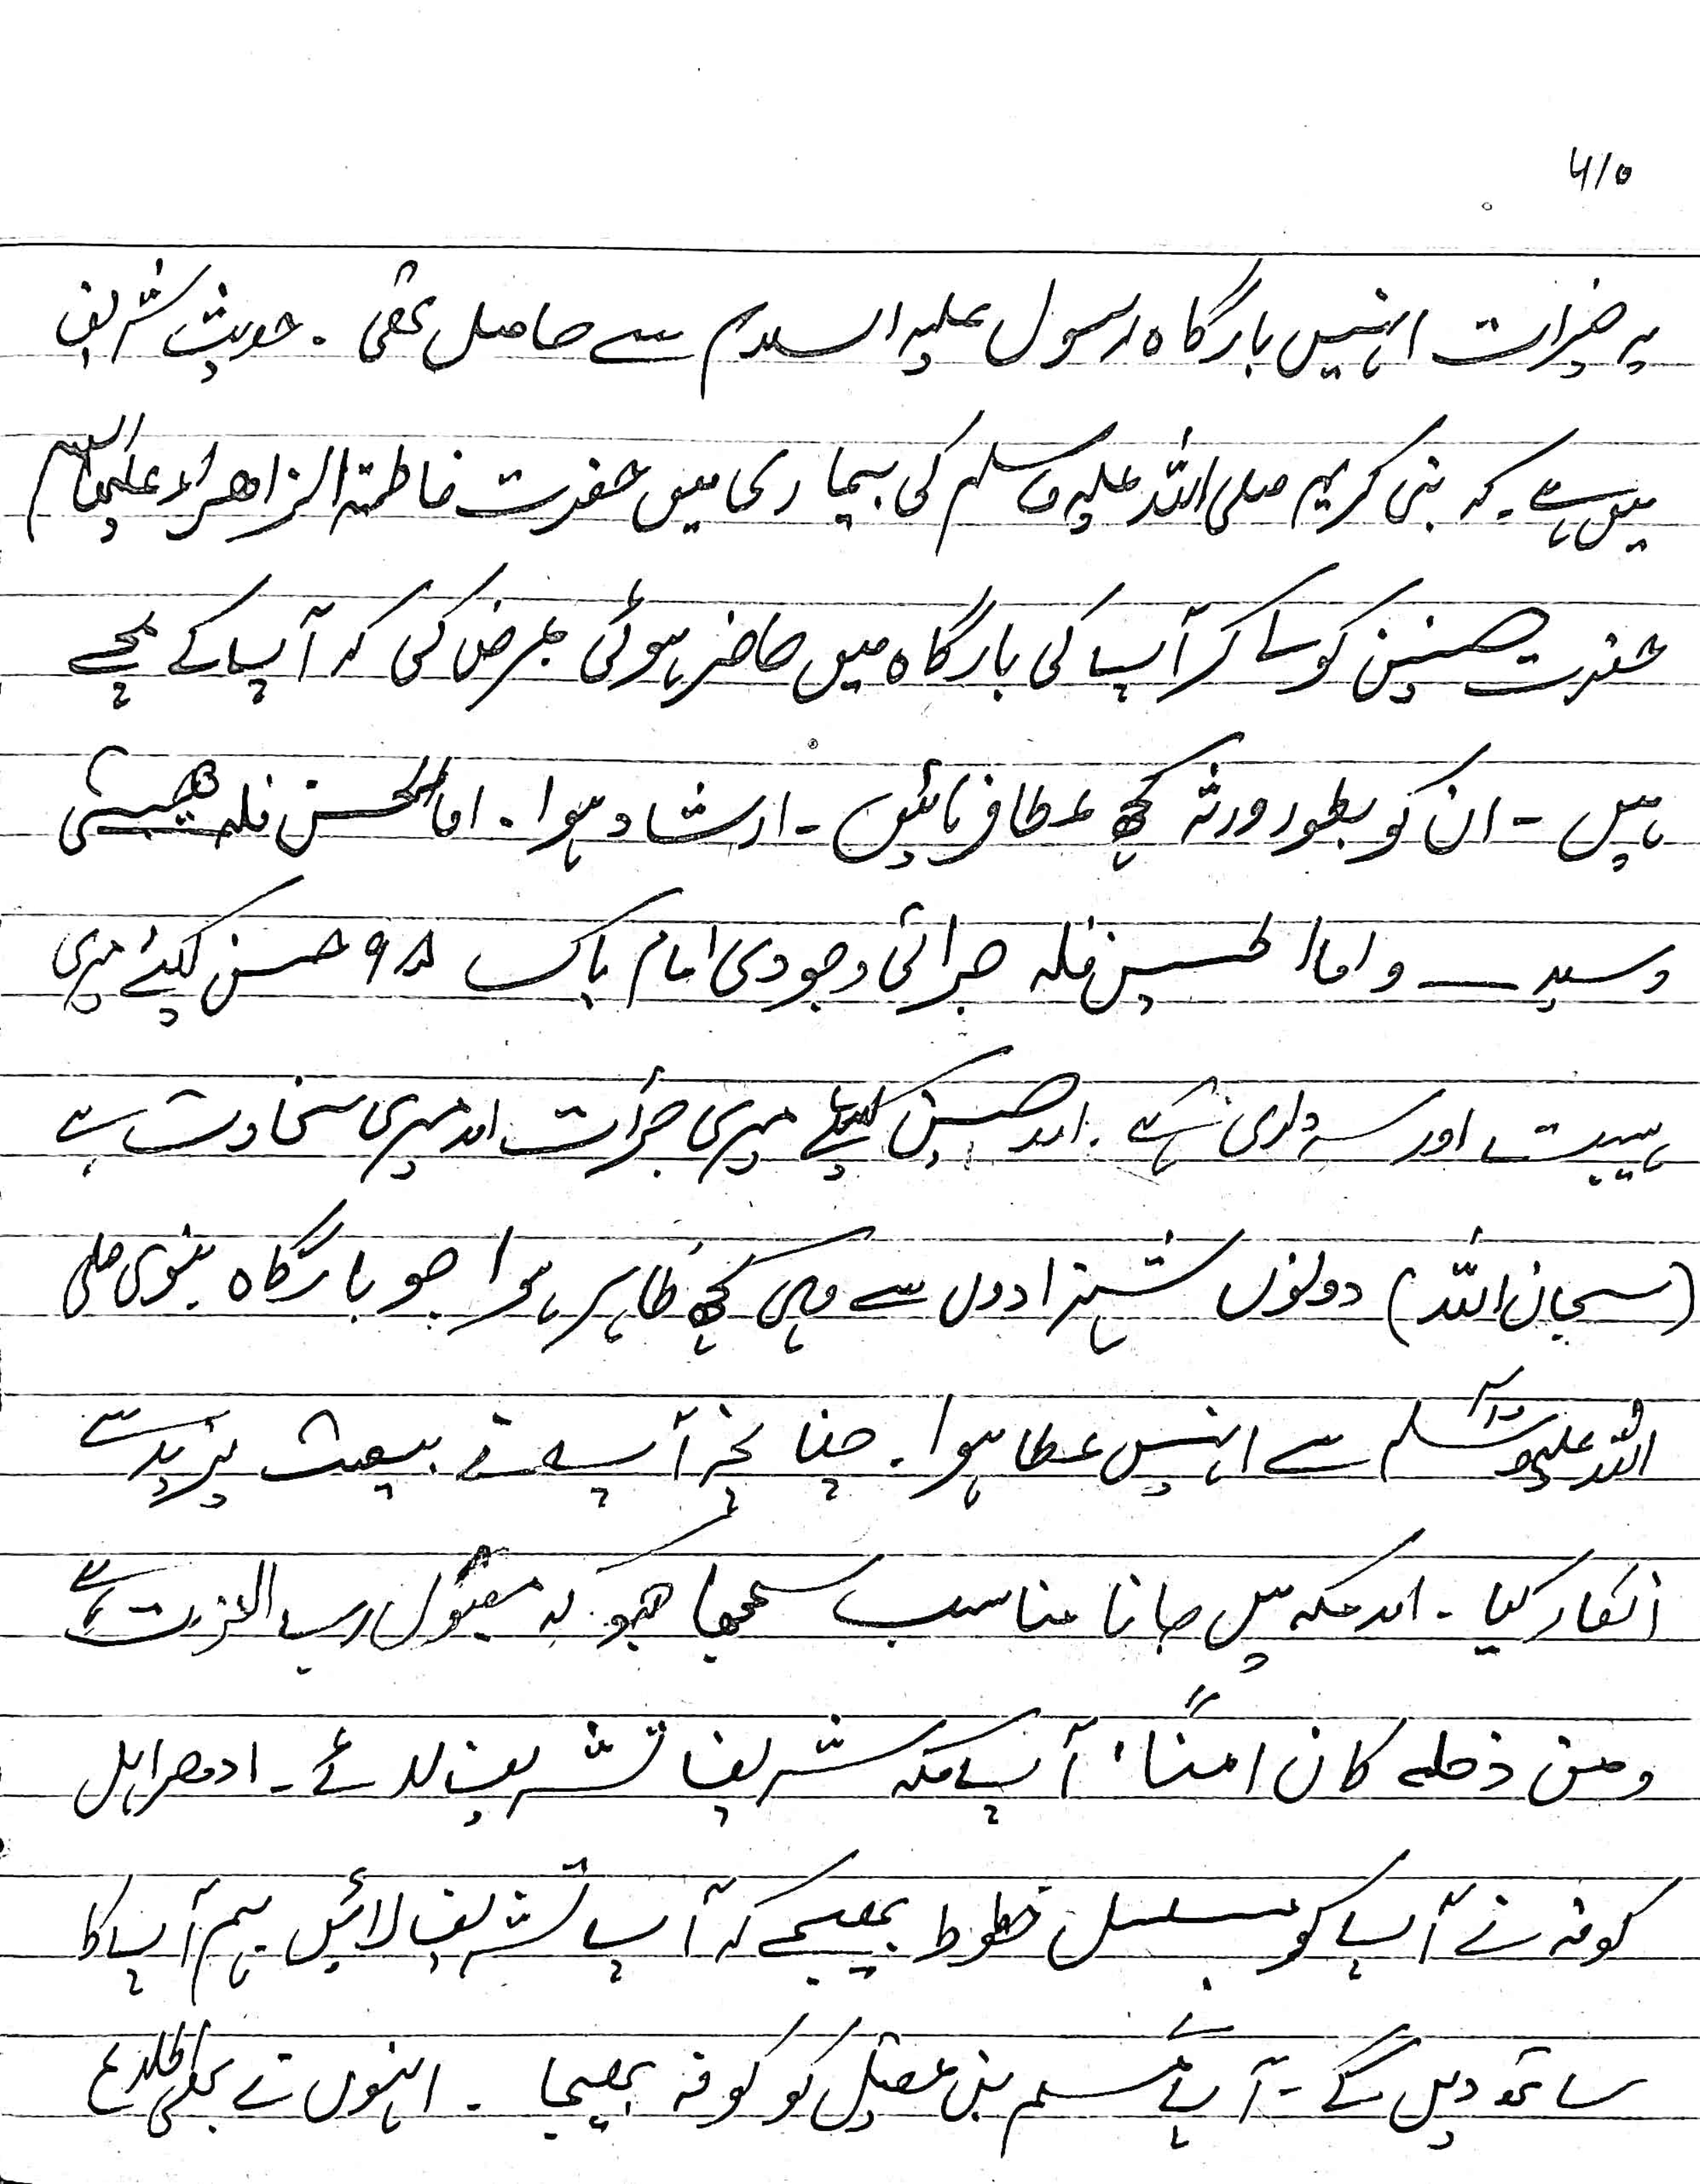 ۵/۱۶
یہ جرات انہیں بارگاہ رسول علیہ السلام سے حاصل تھی ۔ حدیث شریف
میں ہے ۔ کہ نبی کریم صلی اللہ علیہ وسلم کی بیماری میں حضرت فاطمۃ الزاھراء علیھا السلام
حضرت حسنین کو لے کر آپ کی بارگاہ میں حاضر ہوئی عرض کی کہ آپ کے بچے
ہیں ۔ ان کو بطور ورثہ کچھ عطا فرمائیں ۔ ارشاد ہوا ۔ اما الحسن فلہ ھیبتی
وسید واما الحسین فلہ جرائی وجودی امام پاک حسن کیلئے میری
ہیبت اور سرداری ہے ۔ اور حسین کیلئے میری جرأت اور میری سخاوت ہے
(سبحان اللہ) دونوں شہزادوں سے وہی کچھ ظاہر ہوا جو بارگاہ نبوی صلی
اللہ علیہ وآلہ وسلم سے انہیں عطا ہوا ۔ چنانچہ آپ نے بیعت یزید سے
انکار کیا ۔ اور مکہ میں جانا مناسب سمجھا جو کہ مقبول رب العزت ہے
ومن دخلہ کان امنًا' آپ مکہ شریف تشریف لائے ۔ ادھر اہل
کوفہ نے آپ کو مسلسل خطوط بھیجے کہ آپ تشریف لائیں ہم آپ کا
ساتھ دیں گے ۔ آپ نے مسلم بن عقیل کو کوفہ بھیجا ۔ انہوں نے بھی اطلاع